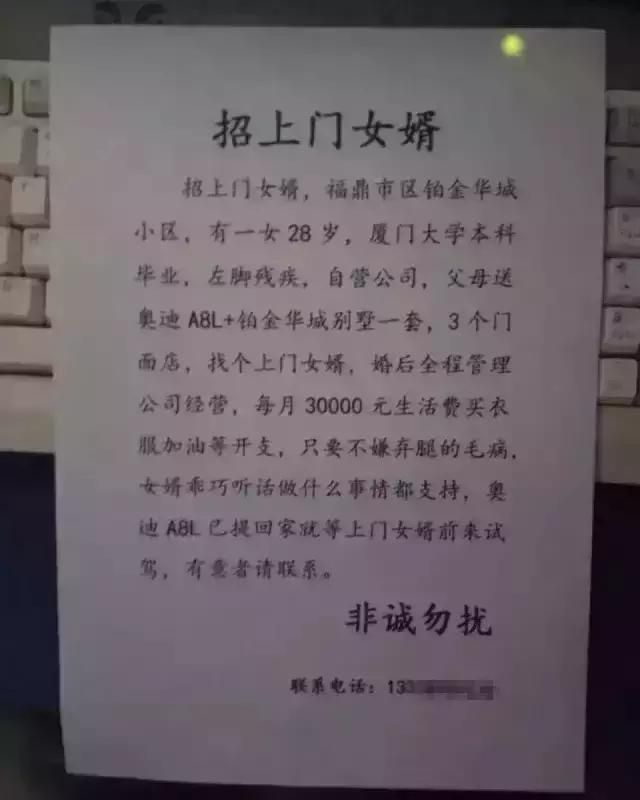 招上门女婿
招上门女婿，福鼎市区铂金华城
小区，有一女28岁，厦门大学本科
毕业，左脚残疾，自营公司，父母送
奥迪A8L+铂金华城别墅一套，3个门
面店，找个上门女婿，婚后全程管理
公司经营，每月30000元生活费买衣
服加油等开支，只要不嫌弃腿的毛病，
女婿乖巧听话做什么事情都支持，奥
迪A8L已提回家就等上门女婿前来试
驾，有意者请联系。
非诚勿扰
联系电话：13